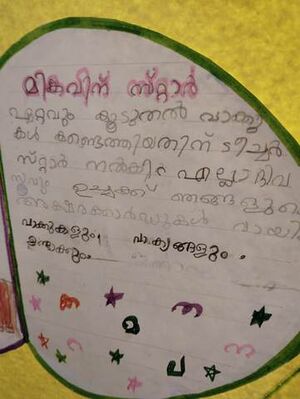 മികവിന് സ്റ്റാർ
ഏറ്റവും കൂടുതൽ വാക്കു
കൾ കണ്ടെത്തിയതിന് ടീച്ചർ
സ്റ്റാർ നൽകി എല്ലാ ദിവ
സവും ഉച്ചക്ക് ഞങ്ങളുടെ
അക്ഷരകാർഡുകൾ വായി
വാക്കുകളും വാക്യങ്ങളും
ഉണ്ടാക്കും
ത ന്ത
മ
ല പ ന